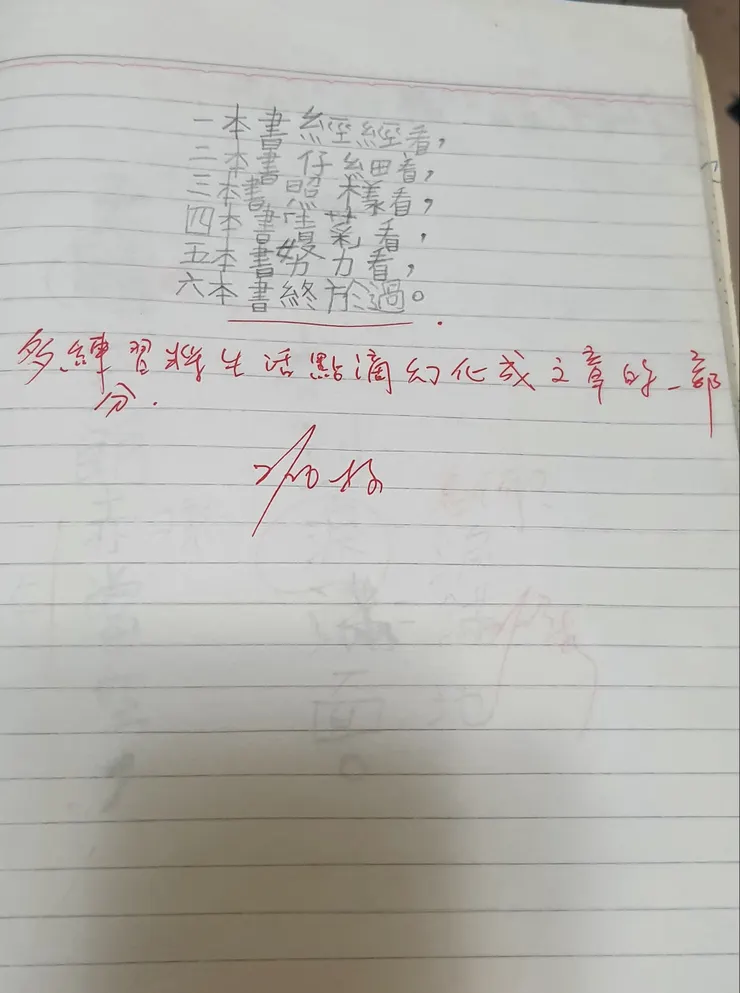 一本書經經看,
二本書仔細看,
三本書照樣看,
四本書慢茫看,
五本書努力看,
六本書終於過。
多練習將生活點滴幻化成文章的一部
分.